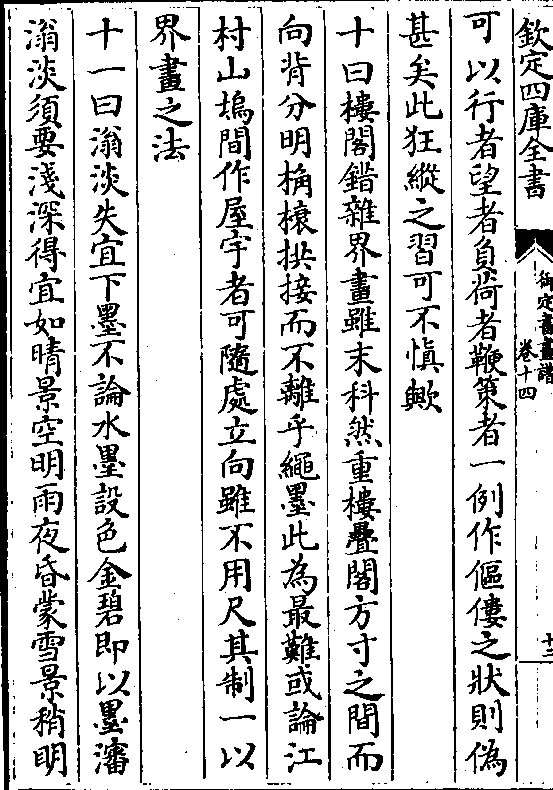 欽定四庫全書
御定書畫譜
卷十四
十三
可以行者望者負荷者鞭策者一例作傴僂之狀則偽
甚矣此狂縱之習可不慎歟
十曰樓閣錯雜界畫雖末科然重樓疊閣方寸之間而
向背分明桷榱拱接而不離乎繩墨此為最難或論江
村山塢間作屋宇者可隨處立向雖不用尺其制一以
界畫之法
十一曰滃淡失宜下墨不論水墨設色金碧即以墨瀋
滃淡須要淺深得宜如晴景空明雨夜昏蒙雪景稍明